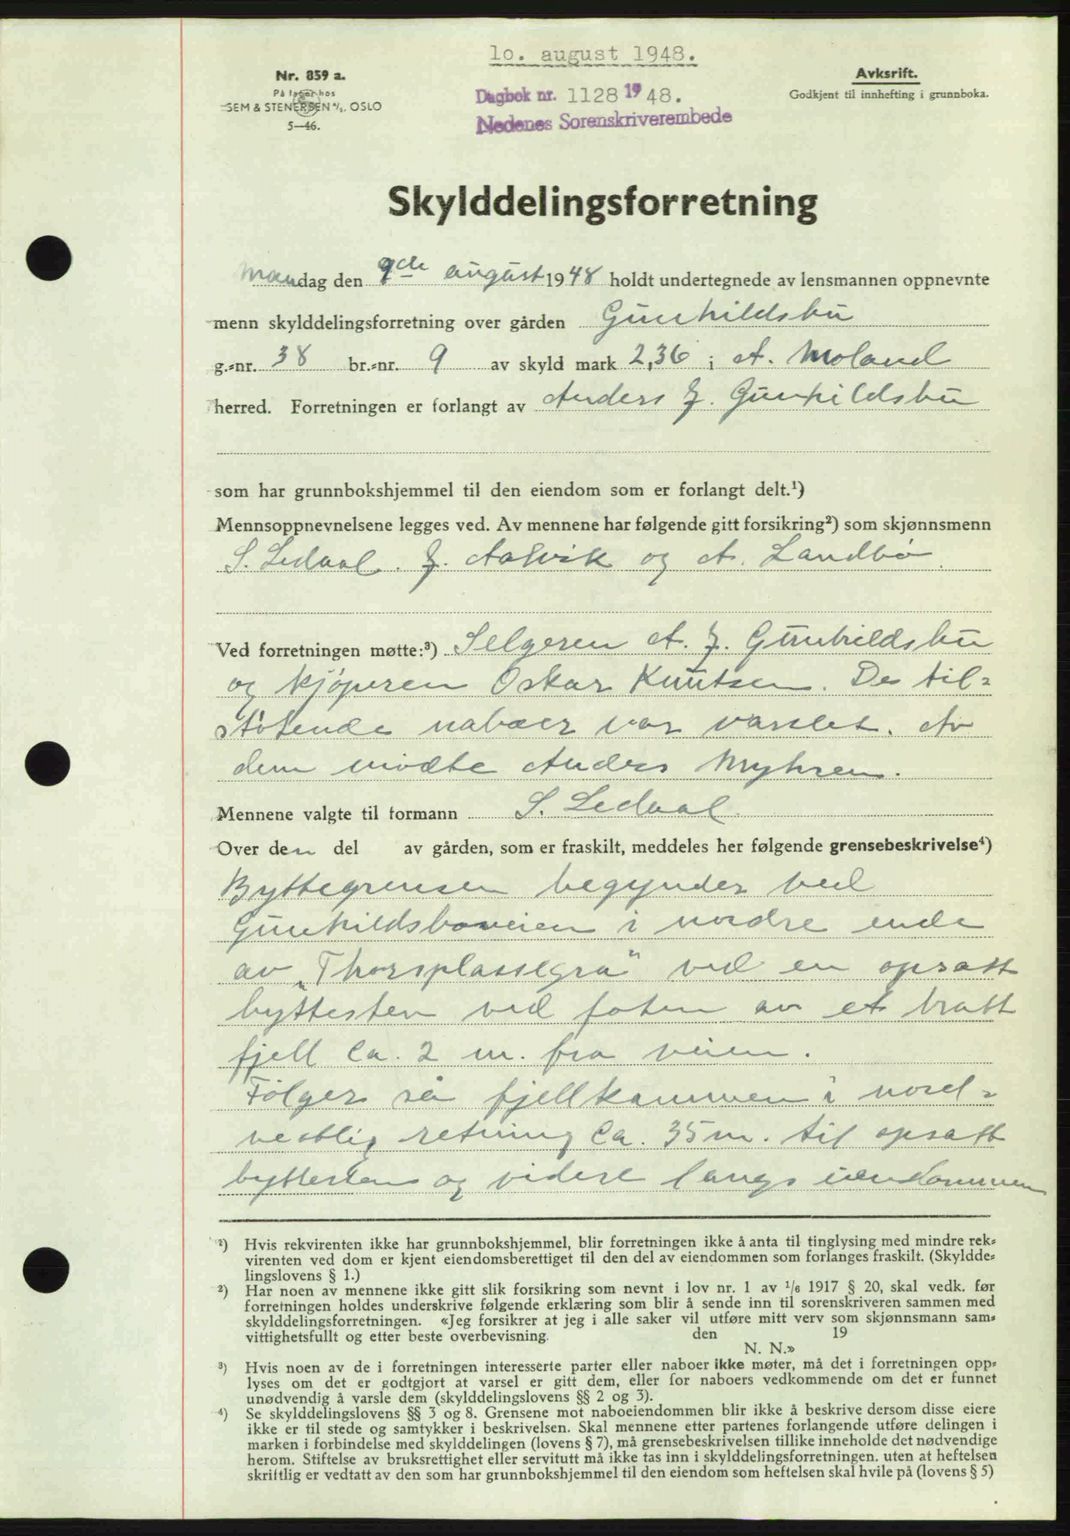 10. august 1948.
Nr. 859 a.
På lager hos
SEM & STENERSEN A/S, OSLO
5—46.
Avskrift.
Godkjent til innhefting i grunnboka.
Dagbok nr. 1128 1948.
Nedenes Sorenskriverembede
Skylddelingsforretning
Mandag den 9de august 1948 holdt undertegnede av lensmannen oppnevnte
menn skylddelingsforretning over gården Gunhildsbu
g.-nr. 38 br.-nr. 9 av skyld mark 2,36 i A. Moland
herred. Forretningen er forlangt av Anders J. Gunhildsbu
som har grunnbokshjemmel til den eiendom som er forlangt delt.¹)
Mennsoppnevnelsene legges ved. Av mennene har følgende gitt forsikring²) som skjønnsmenn
S. Ledaal. J. Aalvik og A. Landbø.
Ved forretningen møtte:³) Selgeren A. J. Gunhildsbu
og kjøperen Oskar Knutsen. De til-
støtende naboer var varslet. Av
dem møtte Anders Myhren.
Mennene valgte til formann S. Ledaal.
Over den del av gården, som er fraskilt, meddeles her følgende grensebeskrivelse⁴)
Byttegrensen begynder ved
Gunhildsboveien i nordre ende
av „Thorsplassegra" ved en opsatt
byttesten ved foten av et bratt
fjell ca. 2 m. fra veien.
Følger så fjellkammen i nord-
vestlig retning ca. 35 m. til opsatt
byttesten og videre langs kammen
¹) Hvis rekvirenten ikke har grunnbokshjemmel, blir forretningen ikke å anta til tinglysing med mindre rek-
virenten ved dom er kjent eiendomsberettiget til den del av eiendommen som forlanges fraskilt. (Skyldde-
lingslovens § 1.)
²) Har noen av mennene ikke gitt slik forsikring som nevnt i lov nr. 1 av 1/6 1917 § 20, skal vedk. før
forretningen holdes underskrive følgende erklæring som blir å sende inn til sorenskriveren sammen med
skylddelingsforretningen. «Jeg forsikrer at jeg i alle saker vil utføre mitt verv som skjønnsmann sam-
vittighetsfullt og etter beste overbevisning. den 19
N. N.»
³) Hvis noen av de i forretningen interesserte parter eller naboer ikke møter, må det i forretningen opp-
lyses om det er godtgjort at varsel er gitt dem, eller for naboers vedkommende om det er funnet
unødvendig å varsle dem (skylddelingslovens §§ 2 og 3).
⁴) Se skylddelingslovens §§ 3 og 8. Grensene mot naboeiendommen blir ikke å beskrive dersom disse eiere
ikke er til stede og samtykker i beskrivelsen. Skal mennene etter partenes forlangende utføre delingen i
marken i forbindelse med skylddelingen (lovens § 7), må grensebeskrivelsen tillike inneholde det nødvendige
herom. Stiftelse av bruksrettighet eller servitutt må ikke tas inn i skylddelingsforretningen. uten at heftelsen
skriftlig er vedtatt av den som har grunnbokshjemmel til den eiendom som heftelsen skal hvile på (lovens § 5)